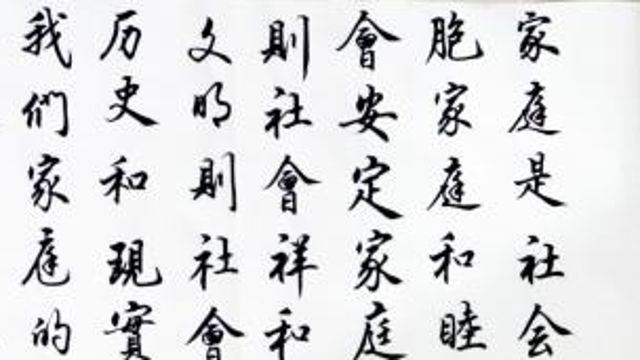 家庭是社会
胞家庭和睦
會安定家庭
則社會祥和
文明則社會
历史和現實
我们家庭的